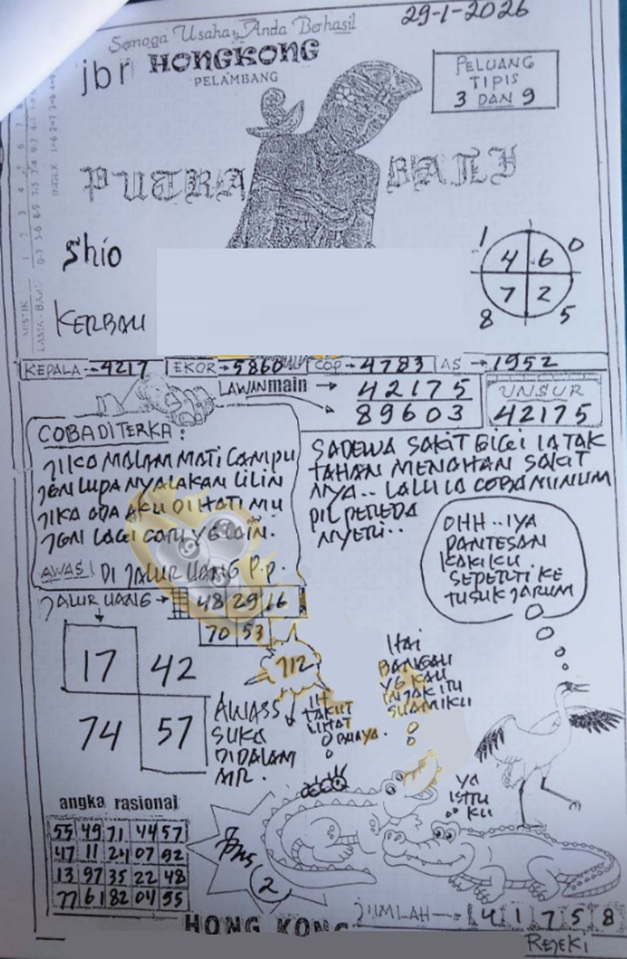 29-1-2026
Semoga Usaha Anda Berhasil
jbr HONGKONG
PELAMBANG
PELUANG
TIPIS
3 DAN 9
PUTRA BALI
Shio
KERBAU
1 0
4 6
7 2
8 5
KEPALA 4217 EKOR 5860 COP 4783 AS 1952
LAWAN main 42175
89603
UNSUR
42175
COBA DITERKA :
JIKA MALAM MATI LAMPU
JGN LUPA NYALAKAN LILIN
JIKA ADA AKU DI HATI MU
JGN LAGI CARI YG LAIN.
AWAS! DI JALUR UANG P.P.
SADEWA SAKIT GIGI IA TAK
TAHAN MENAHAN SAKIT
NYA.. LALU IA COBA MINUM
PIL PEREDA
NYERI..
OHH..IYA
PANTESAN
KAKIKU
SEPERTI KE
TUSUK JARUM
JALUR UANG 48 29 16
70 53
712
17 42
74 57
AWASS
SUKA
DIDALAM
AIR.
IH
TAKUT
LIHAT
HAI
BANGAU
YG KAU
INJAK ITU
SUAMIKU
YA
ISTRI
KU
angka rasional
55 49 71 44 57
47 11 24 07 92
13 97 35 22 48
77 61 82 04 55
2
HONG KONG
JUMLAH 4 1 7 5 8
REJEKI